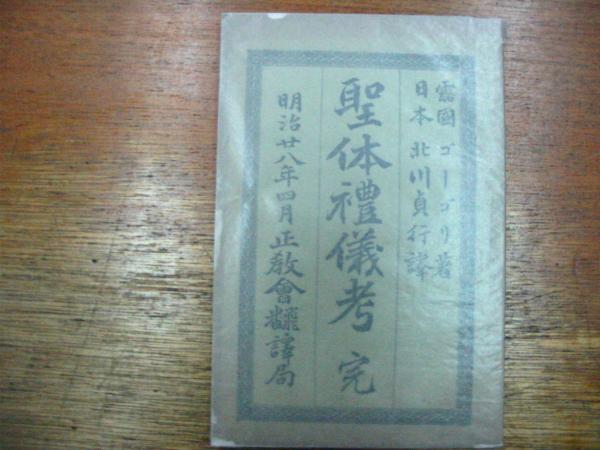 露國 ゴーゴリ著
日本 北川貞行譯
聖体禮儀考 完
明治廿八年四月 正敎會飜譯局